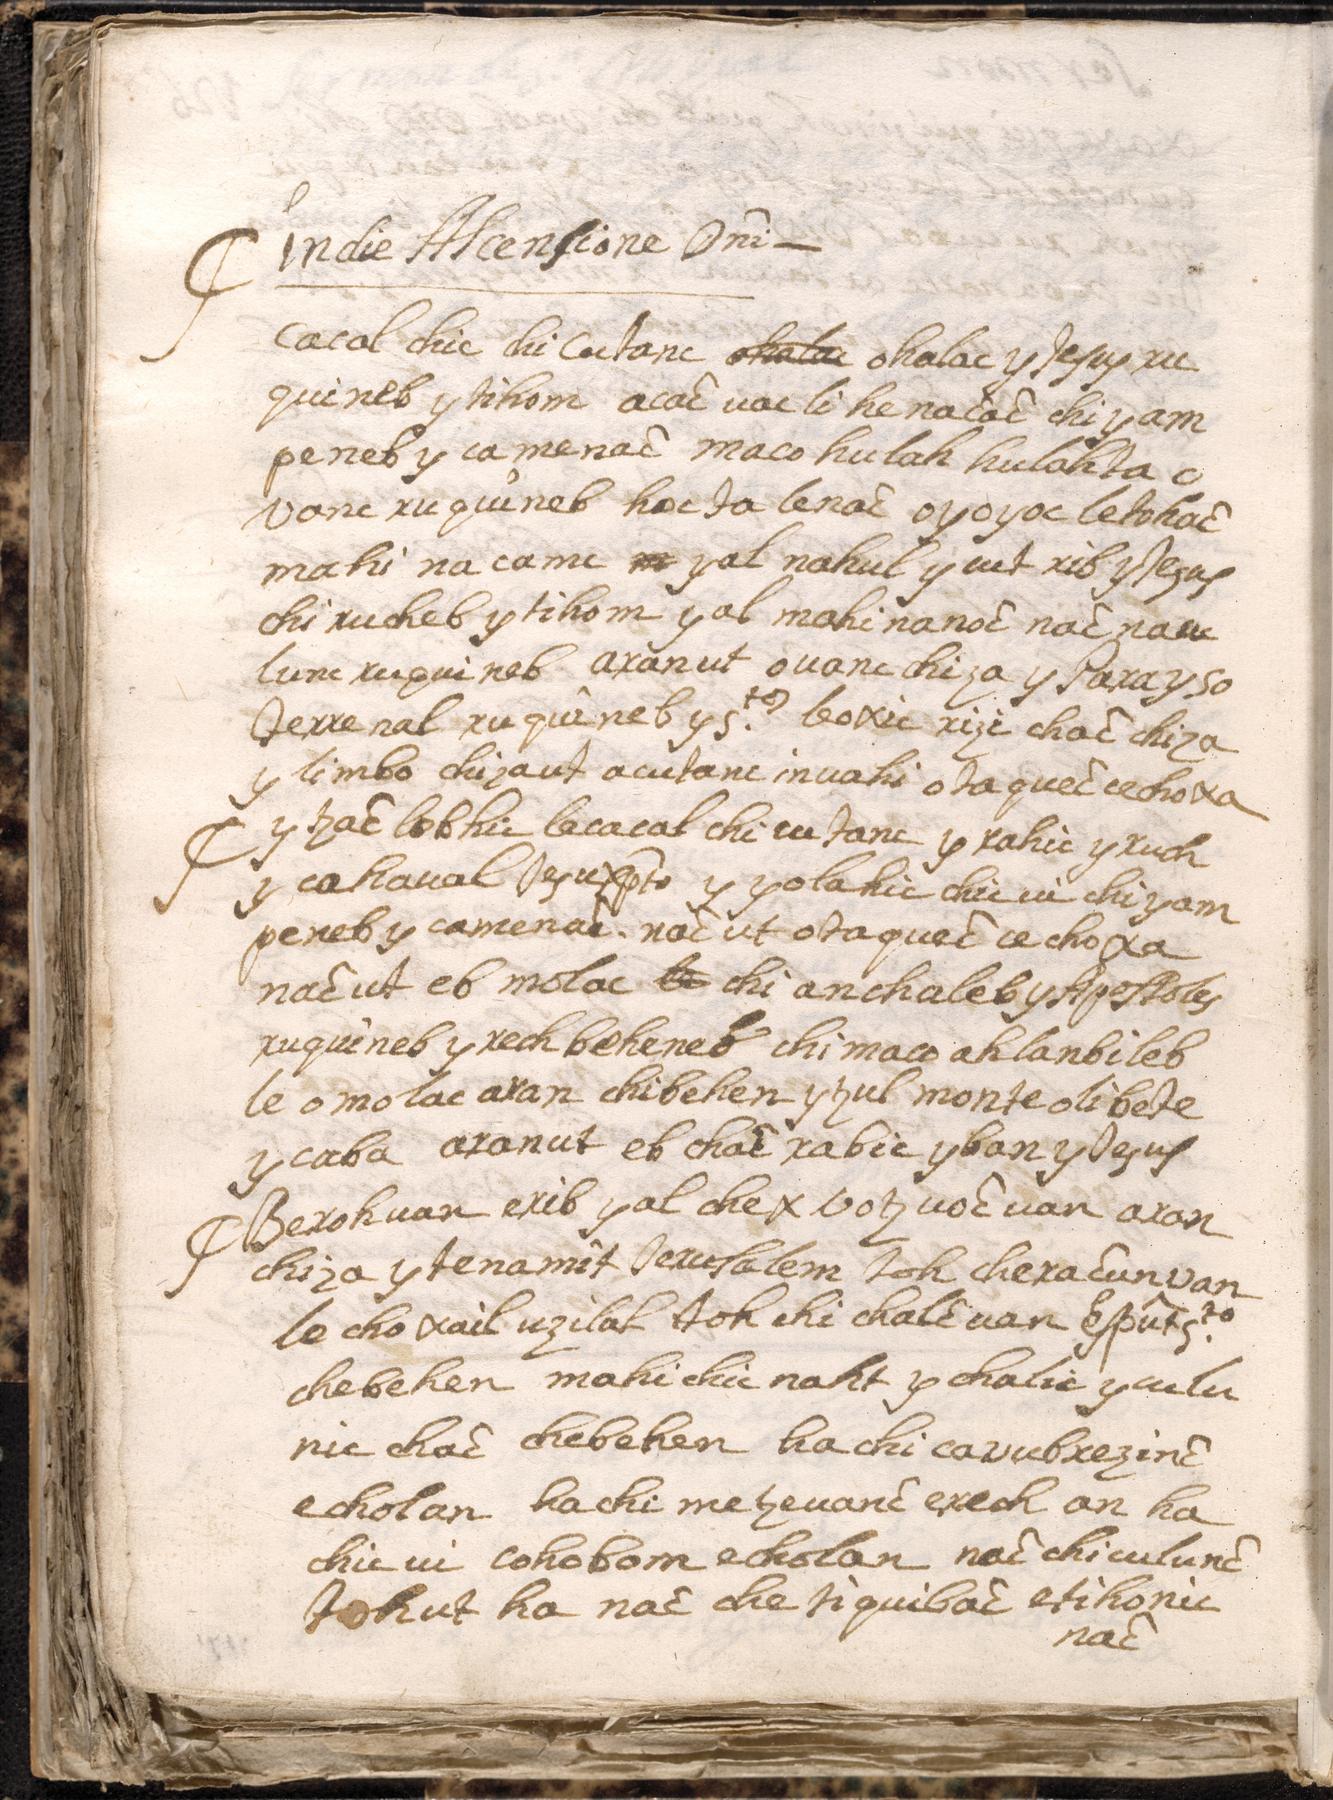 ₵ Indie Ascensione Dñi —
cacal chic chi Cutanc ohalac y Jesus ru
quineb y tihom acac̃ uac li he nac̃ac̃ chi yam
peneb y camenac̃ maco hulah hulahta o
vanc ruquineb hoc ta lenac̃ oyoyoc letohac̃
mahi na camc yal nahul y uut rib y Jesus
chi rucheb y tihom yal mahi nanoc̃ nac̃ nacu
lunc ruquineb aranut ouanc chiza y Parayso
terrenal ruquineb y s.to leoxic rizi chac̃ chiza
y limbo chizaut acutanc inuahi otaquec̃ cechoxa
₵ y tzac̃ lobhic lecacal chi cutanc y rahic y ruch
y cahaual Jesuxpto y yolahic chic ui chi yam
peneb y camenac̃. nac̃ ut otaquec̃ cechoxa
nac̃ ut eb molac chi anchaleb y Apostoles
ruquineb y rech beheneb chi maco ahlanbileb
le omolac aran chibehen y tzul monte olibete
y caba aranut eb chac̃ rabic y ban y Jesus
₵ Berohuan erib yal chex votz uoc̃ uan aran
chiza y tenamit Jerusalem toh cherac̃unvan
le choxail uzilal toh chi chalc̃ uan Espũts.to
chebehen mahi chic naht y chalic y culu
nic chac̃ chebehen ha chi cavubrezinc̃
echolan ha chi metzeuanc̃ erech an ha
chic ui cohobom echolan nac̃ chi culunc̃
tohut ha nac̃ che tiquibac̃ etihonic
nac̃